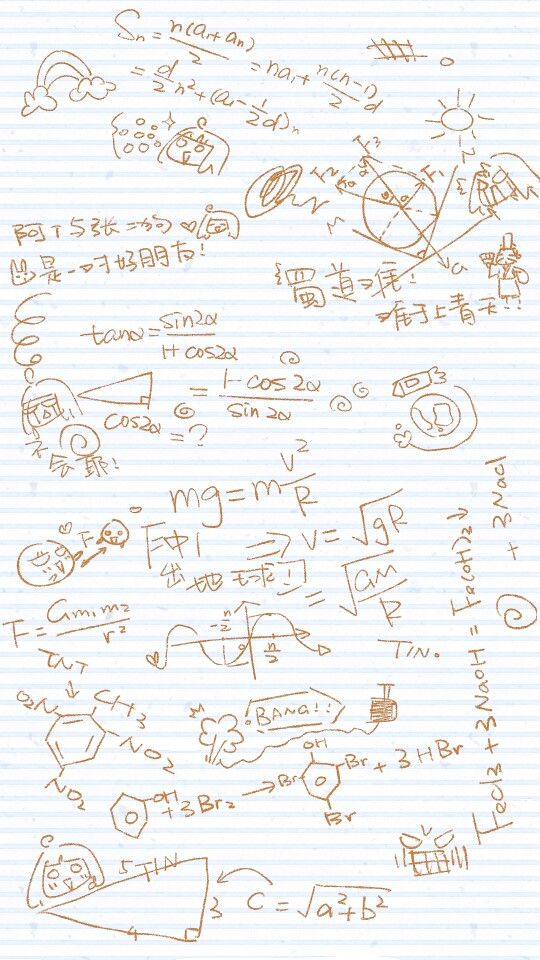 Sn = n(a1+an)/2 = na1 + n(n-1)/2 d
= d/2 n² + (a1 - 1/2 d)n
F3
F2
F1
N
M
G
阿T与张二狗
是一对好朋友!
蜀道难!
难于上青天!!
tanα = sin2α/1+cos2α
= 1-cos2α/sin2α
cos2α = ?
不会耶!
mg = m V²/R
F
F冲!
⇒ V = √gR
出地球!
= √GM/R
F = Gm1m2/r²
-π/2
π/2
TIN.
TNT
↓
O2N
CH3
NO2
NO2
BANG!!
OH +3Br2 →
OH
Br
Br
Br
+ 3HBr
FeCl3 + 3NaOH = Fe(OH)3↓ + 3NaCl
5 TIN
3
4
C = √a²+b²